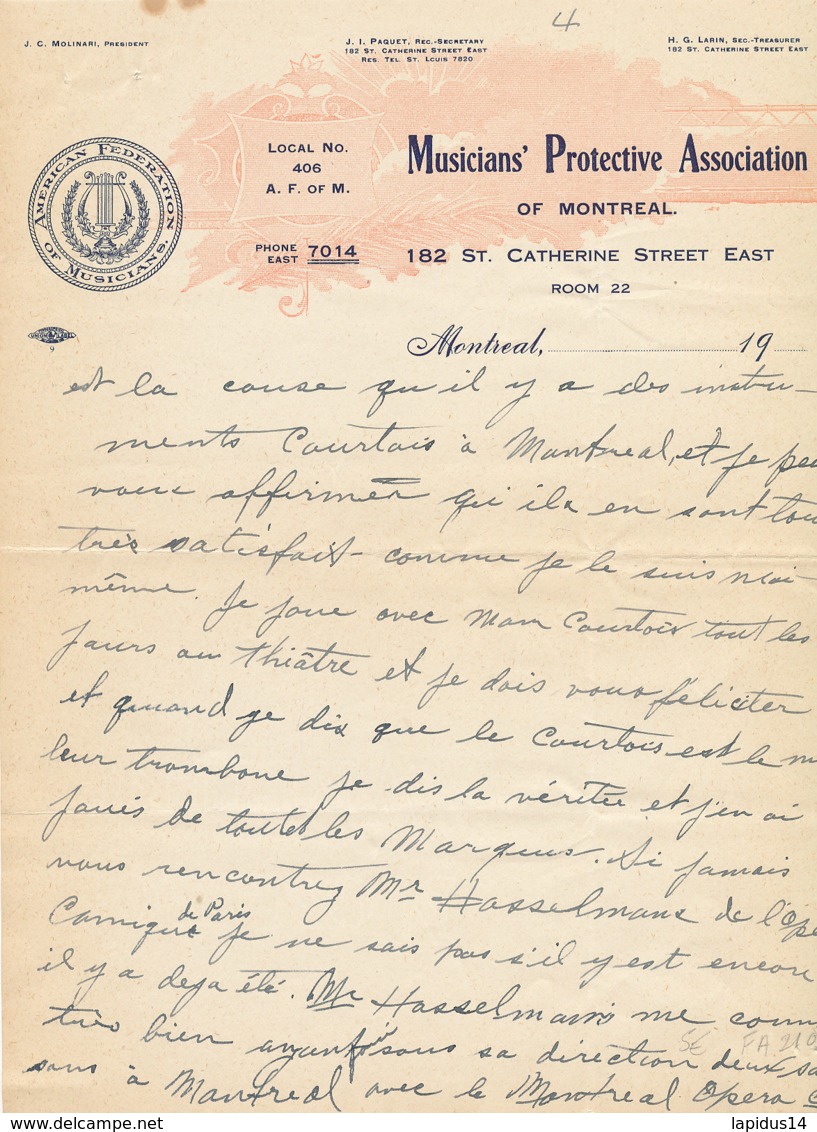 4
J. C. Molinari, President
J. I. Paquet, Rec.-Secretary
182 St. Catherine Street East
Res. Tel. St. Louis 7820
H. G. Larin, Sec.-Treasurer
182 St. Catherine Street East
American Federation of Musicians.
Local No.
406
A. F. of M.
Musicians' Protective Association
of Montreal.
Phone East 7014
182 St. Catherine Street East
Room 22
Union Label
9
Montreal, 19
est la cause qu il y a des instru-
ments Courtois à Montreal, et je peu
vous affirmer qu ils en sont tou
très satisfait- comme je le suis moi-
même. Je joue avec mon Courtois tout les
jours au théâtre et je dois vous féliciter
et quand je dis que le Courtois est le m
leur trombone je dis la véritée et j'en ai
joués de toutes les Marques. Si jamais
vous rencontrez Mr Hasselmans de l'Opé
Comique de Paris je ne sais pas s'il y est encore
il y a deja été. Mr Hasselmans me conn
très bien ayant sous sa direction deux sa
sons à Montreal avec le Montreal Opera C
SE FA 210
lapidus14